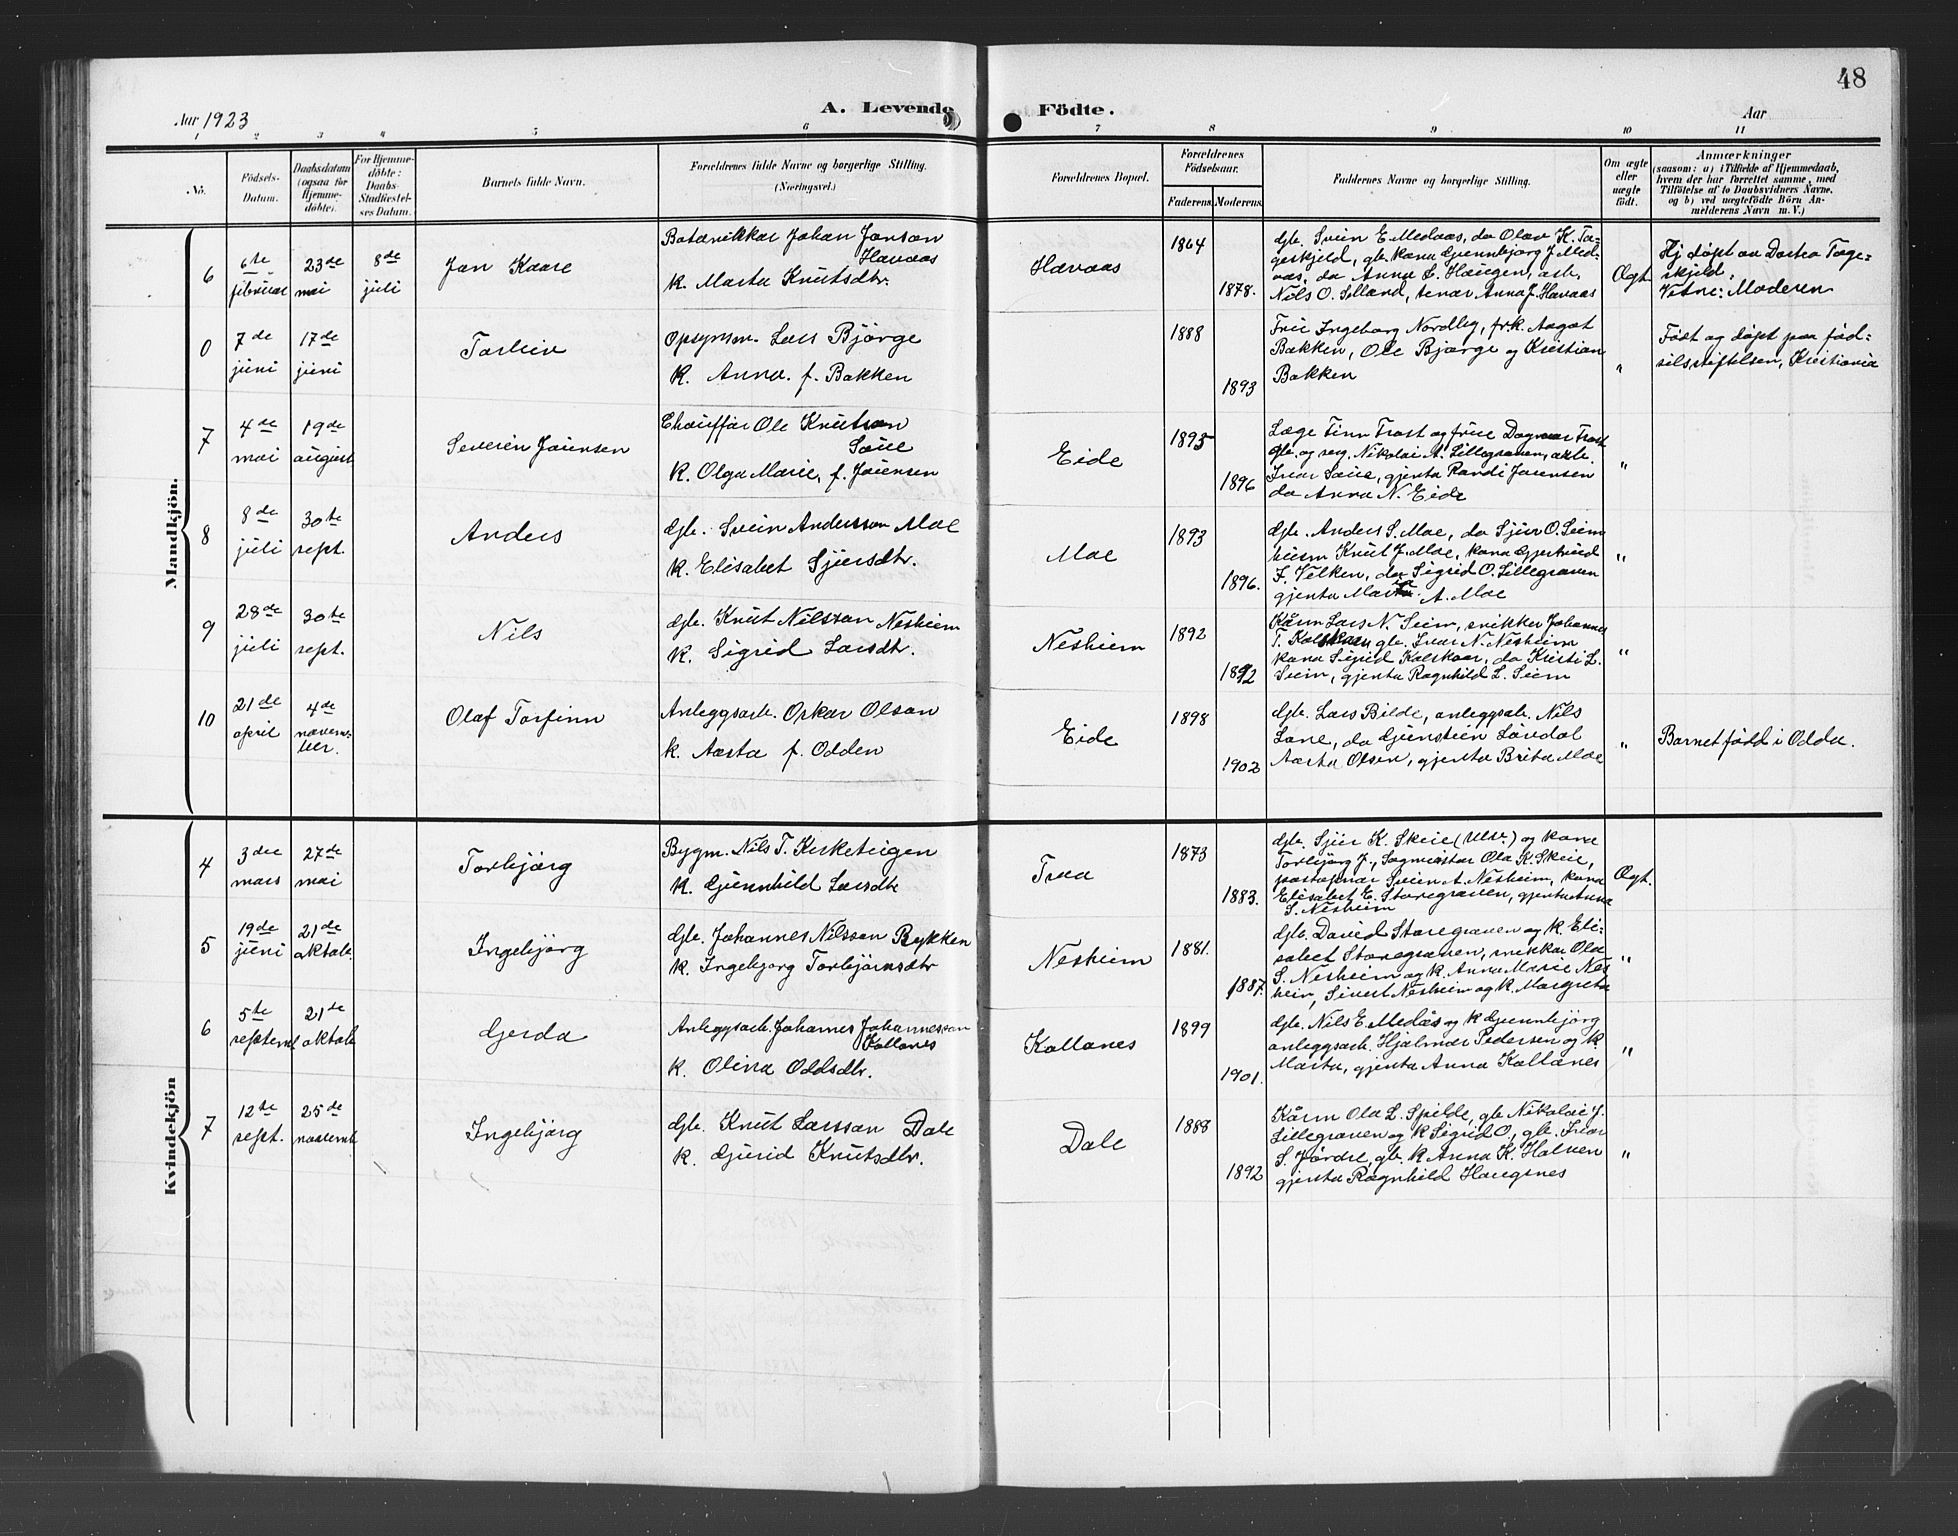 48
Aar 1923
A. Levende
Födte.
Aar
1 2 3 4 5 6 7 8 9 10 11
No.
Födsels-
Datum.
Daabsdatum
(ogsaa for
Hjemme-
döbte).
For Hjemme-
döbte:
Daabs-
Stadfæstel-
ses Datum.
Barnets fulde Navn.
Forældrenes fulde Navne og borgerlige Stilling.
(Næringsvei.)
Forældrenes Bopæl.
Forældrenes
Födselsaar.
Faderens. Moderens.
Faddernes Navne og borgerlige Stilling.
Om ægte
eller
uægte
födt.
Anmærkninger
(saasom: a) i Tilfælde af Hjemmedaab,
hvem der har forrettet samme, med
Tilföielse af to Daabsvidners Navne,
og b) ved uægtefödte Börn An-
melderens Navn m. V.)
Mandkjön.
6
6te
februar
23de
mai
8de
juli
Jan Kaare
Baatsnikkar Johan Jonson
Havaas
k. Marta Knutsdtr.
Havaas
1864
1878.
gb. Svein E. Medaas, do Olav K. Ta-
geskjeld, gb. kona Gunnbjørg J. Med-
aas, do Anna L. Haugen, arb.
Nils O. Selland, tenar Anna J. Havaas
Ægt.
Hj døpt av Dortea Tage-
skjeld,
Vitne: Moderen
0
7de
juni
17de
juni
Torleiv
Opsynsm. Lars Bjørge
k. Anna f. Bakken
1888
1893
Frue Ingeborg Nordlig, frk. Aagot
Bakken, Ole Bjørge og Kristian
Bakken
"
Født og døpt paa fød-
selsstiftelsen, Kristiania
7
4de
mai
19de
august
Severin Joensen
Chauffør Ole Knutson
Saue
k. Olga Marie, f. Joensen
Eide
1895
1896
Læge Finn Trost og frue Dagmar Trost
gb. og Nikolai A. Lillegraven,
Ivar Saue, gjenta Randi Joensen
do Anna N. Eide
"
8
8de
juli
30te
sept.
Anders
gb. Svein Andersson Moe
k. Elisabet Sjursdtr.
Moe
1893
1896.
gb. Anders S. Moe, do Sjur O. Seim
husm Knut J. Moe, kona Gjertrud
F. Velken, do Sigrid O. Lillegraven
gjenta Marta A. Moe
"
9
28de
juli
30te
sept.
Nils
gb. Knut Nilsson Nesheim
k. Sigrid Larsdtr.
Nesheim
1892
1892
Kårm Lars N. Seim, snikker Johannes
T. Kolskaar, gb. Ivar N. Nesheim
kona Sigrid Kolskaar, do Kristi L.
Seim, gjenta Ragnhild L. Seim
"
10
21de
april
4de
novem-
ber.
Olaf Torfinn
Anleggsarb. Oskar Olson
k. Aasta f. Odden
Eide
1898
1902
gb. Lars Bilde, anleggsarb. Nils
Lone, do Gunstein Løvdal
Aasta Olsen, gjenta Brita Moe
"
Barnet född i Odda.
Kvindekjön
4
3dee
mars
27de
mai
Torbjørg
Bygm. Nils T. Kirketeigen
k. Gunnhild Larsdtr
Traa
1873
1883.
gb. Sjur K. Skeie (Ulv.) og kona
Torbjørg J., Sagmeistar Ola K. Skeie,
postopnar Svein A. Nesheim, kona
Elisabet E. Storegraven, gjenta Anna
S. Nesheim
Ægt.
5
19de
juni
21de
oktob.
Ingebjørg
gb. Johannes Nilsson Rykken
k. Ingebjørg Torbjørnsdtr
Nesheim
1881.
1887.
gb. David Storegraven og k. Eli-
sabet Storegraven, snikkar Ola
S. Nesheim og k. Anna Marie Nes-
heim, Sivert Nesheim og k. Margreta
"
6
5te
septemb.
21de
oktob.
Gerda
Anleggsarb. Johannes Johannesson
Kollanes
k. Olina Oddsdtr.
Kollanes
1899
1901.
gb. Nils E. Medås og k Gunnbjørg
anleggsarb. Hjalmar Pedersen og k
Marta, gjenta Anna Kollanes
"
7
12te
sept.
25de
novemb.
Ingebjørg
gb. Knut Larsson Dale
k. Gurid Knutsdtr.
Dale
1888
1892
Kårm Ola L. Spilde, gb Nikolai J.
Lillegraven og k Sigrid O., gb. Ivar
S. Jørdre, gb. k Anna K. Holven
gjenta Ragnhild Haugsnes
"